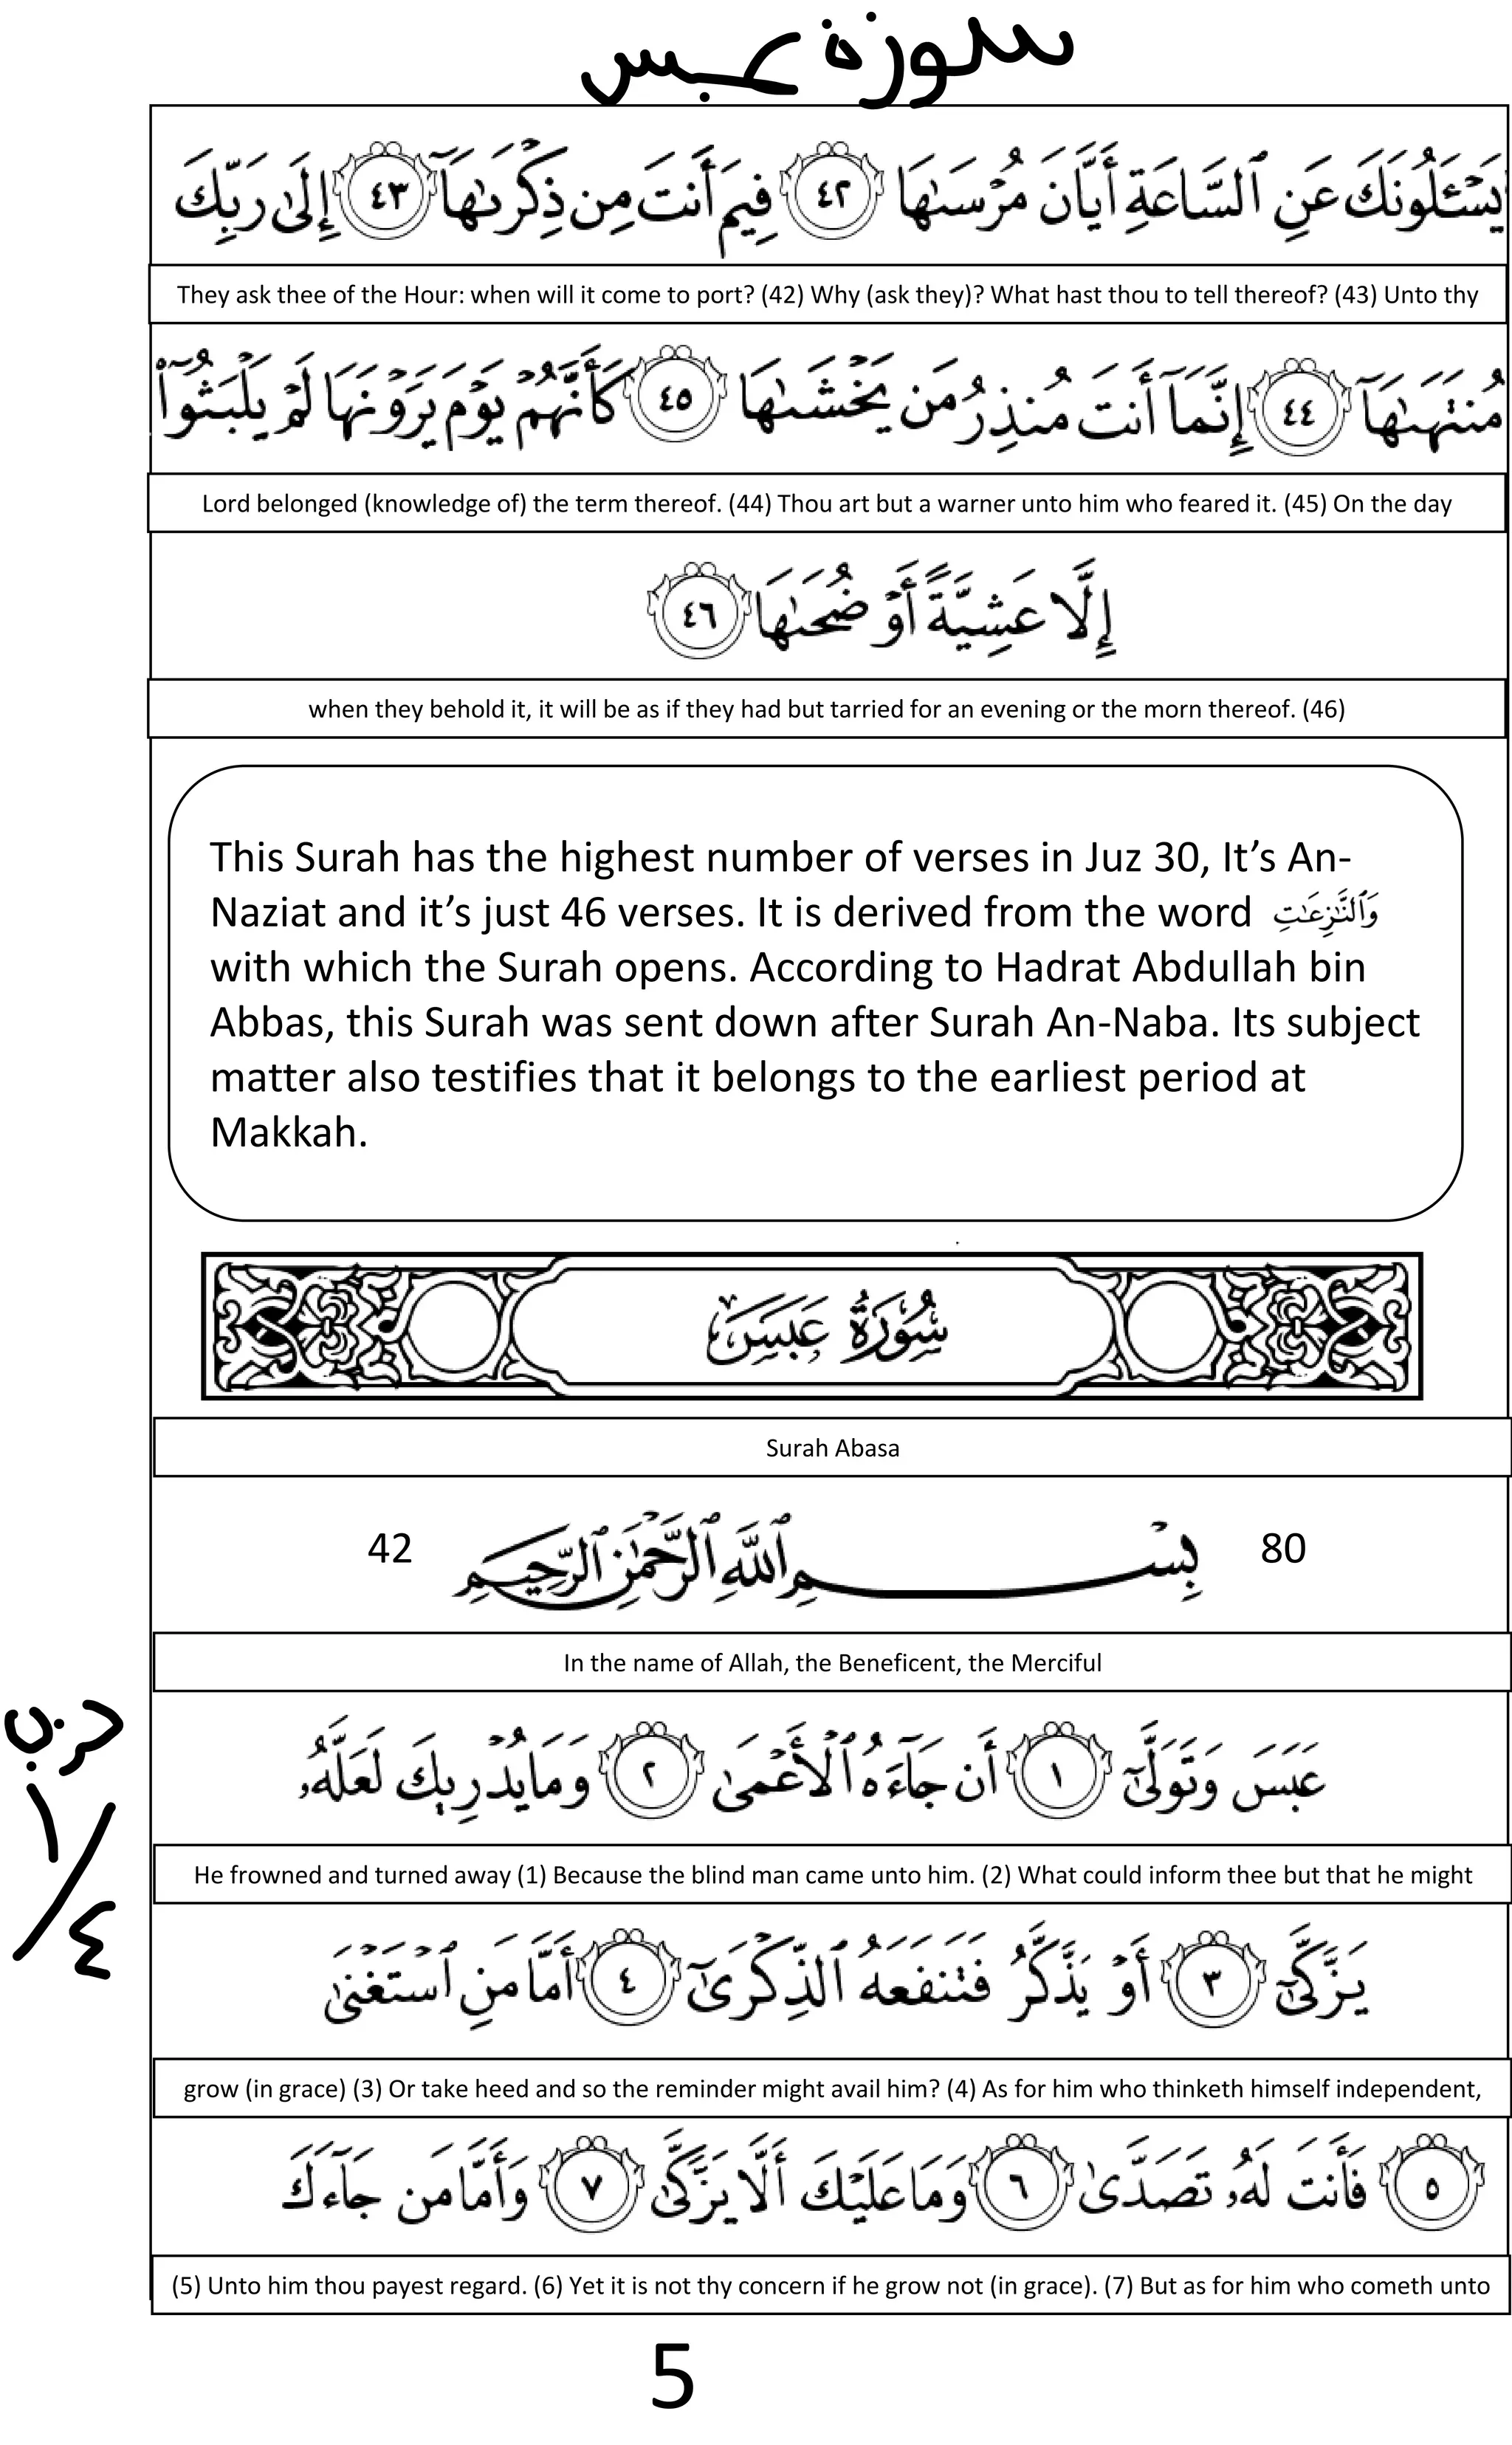 سورة عبس
يَسْـَٔلُونَكَ عَنِ ٱلسَّاعَةِ أَيَّانَ مُرْسَىٰهَا ٤٢ فِيمَ أَنتَ مِن ذِكْرَىٰهَآ ٤٣ إِلَىٰ رَبِّكَ
They ask thee of the Hour: when will it come to port? (42) Why (ask they)? What hast thou to tell thereof? (43) Unto thy
مُنتَهَىٰهَآ ٤٤ إِنَّمَآ أَنتَ مُنذِرُ مَن يَخْشَىٰهَا ٤٥ كَأَنَّهُمْ يَوْمَ يَرَوْنَهَا لَمْ يَلْبَثُوٓا۟
Lord belonged (knowledge of) the term thereof. (44) Thou art but a warner unto him who feared it. (45) On the day
إِلَّا عَشِيَّةً أَوْ ضُحَىٰهَا ٤٦
when they behold it, it will be as if they had but tarried for an evening or the morn thereof. (46)
This Surah has the highest number of verses in Juz 30, It’s An-
Naziat and it’s just 46 verses. It is derived from the word وَٱلنَّـٰزِعَـٰتِ
with which the Surah opens. According to Hadrat Abdullah bin
Abbas, this Surah was sent down after Surah An-Naba. Its subject
matter also testifies that it belongs to the earliest period at
Makkah.
سُورَةُ عَبَسَ
Surah Abasa
80 بِسْمِ ٱللَّهِ ٱلرَّحْمَـٰنِ ٱلرَّحِيمِ 42
In the name of Allah, the Beneficent, the Merciful
عَبَسَ وَتَوَلَّىٰٓ ١ أَن جَآءَهُ ٱلْأَعْمَىٰ ٢ وَمَا يُدْرِيكَ لَعَلَّهُۥ
He frowned and turned away (1) Because the blind man came unto him. (2) What could inform thee but that he might
يَزَّكَّىٰٓ ٣ أَوْ يَذَّكَّرُ فَتَنفَعَهُ ٱلذِّكْرَىٰٓ ٤ أَمَّا مَنِ ٱسْتَغْنَىٰ
grow (in grace) (3) Or take heed and so the reminder might avail him? (4) As for him who thinketh himself independent,
٥ فَأَنتَ لَهُۥ تَصَدَّىٰ ٦ وَمَا عَلَيْكَ أَلَّا يَزَّكَّىٰ ٧ وَأَمَّا مَن جَآءَكَ
(5) Unto him thou payest regard. (6) Yet it is not thy concern if he grow not (in grace). (7) But as for him who cometh unto
١/٤
5